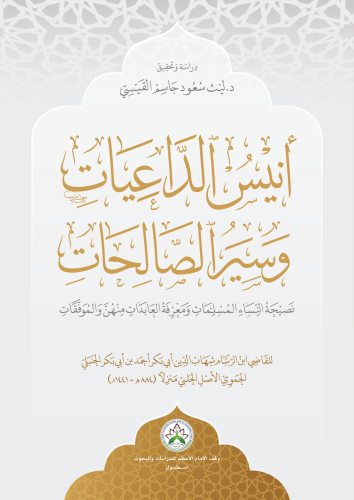 دراسة وتحقيق
د. ليث سعود جاسم القيسي
أنيس الداعيات
وسير الصالحات
نصيحة النساء المسلمات ومعرفة العابدات منهن والموفقات
للقاضي ابن الرسام شهاب الدين أبي بكر أحمد بن أبي بكر الحنبلي
الحموي الأصل الحلبي منزلاً (٨٨٤ - ١٤٤١م)
وقف الإمام الأعظم للدراسات والبحوث
اسطنبول